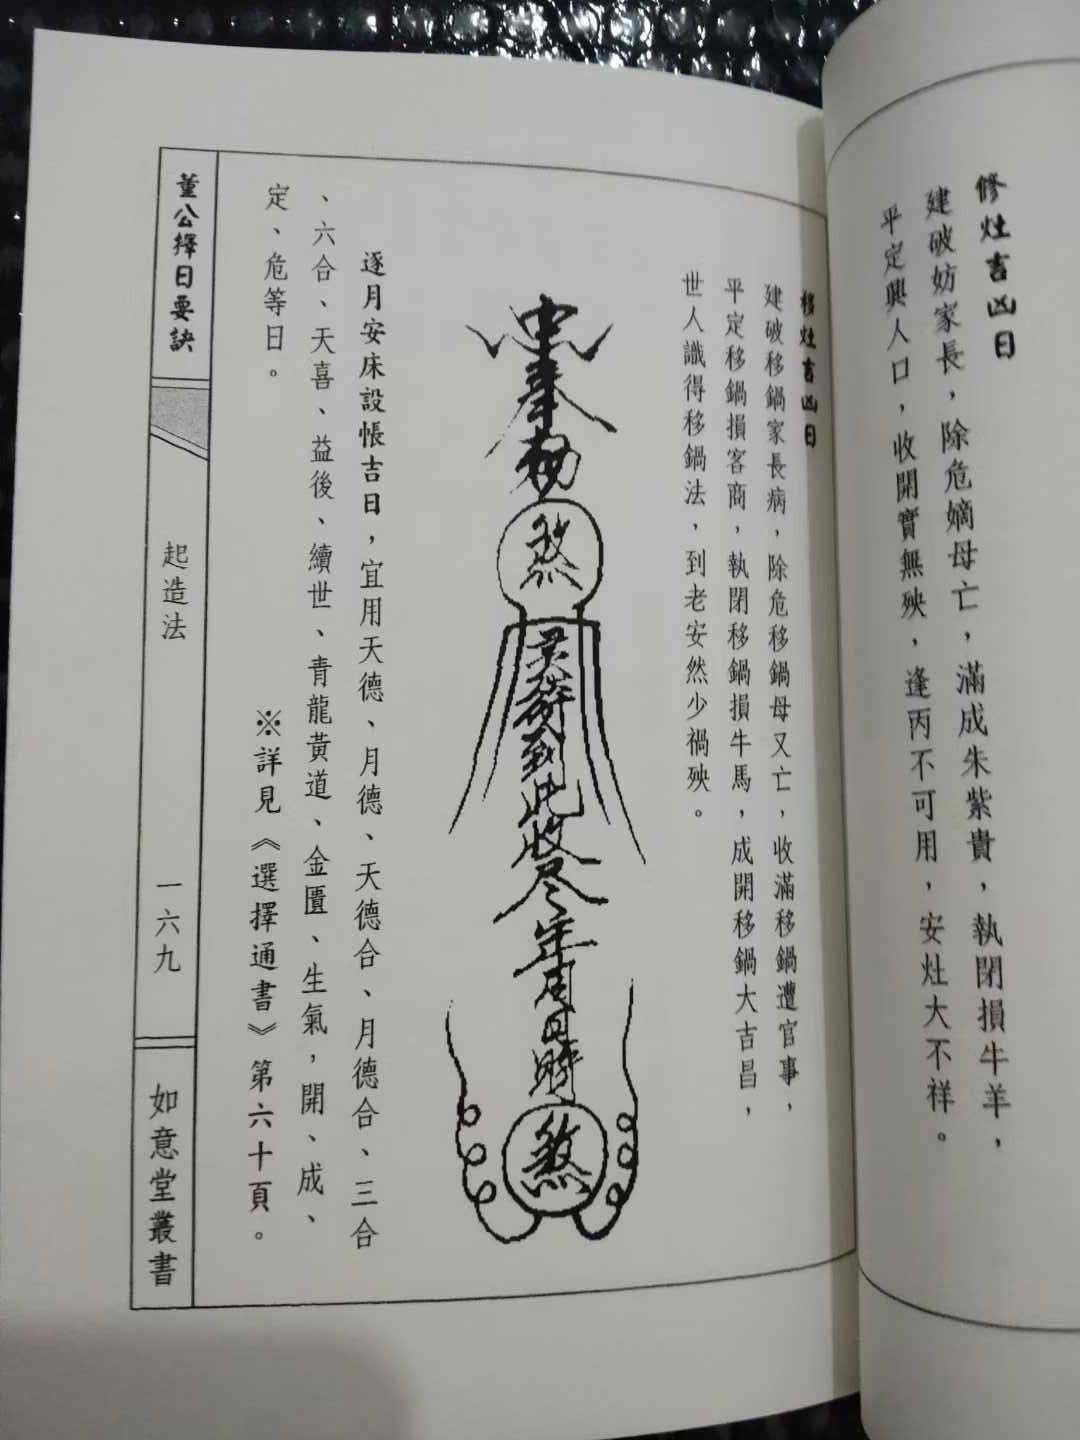 修灶吉凶日
建破妨家長，除危嫡母亡，滿成朱紫貴，執閉損牛羊，
平定興人口，收開實無殃，逢丙不可用，安灶大不祥。
移灶吉凶日
建破移鍋家長病，除危移鍋母又亡，收滿移鍋遭官事，
平定移鍋損客商，執閉移鍋損牛馬，成開移鍋大吉昌，
世人識得移鍋法，到老安然少禍殃。
奉勅
煞
到此收尽年月日時
煞
逐月安床設帳吉日，宜用天德、月德、天德合、月德合、三合
、六合、天喜、益後、續世、青龍黃道、金匱、生氣，開、成、
定、危等日。
※詳見《選擇通書》第六十頁。
董公擇日要訣
起造法
一六九
如意堂叢書